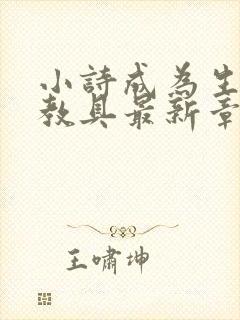 小詩成為生
教具最新章
王嘯坤